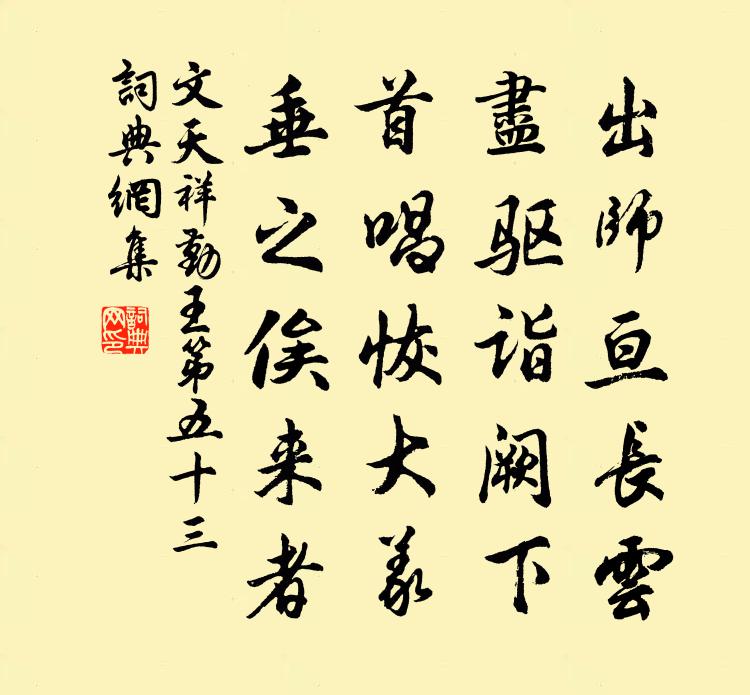 出師亘長雲
盡驱詣阙下
首唱恢大義
垂之俟来者
文天祥勤王第五十三
詞典網集
詞典網印